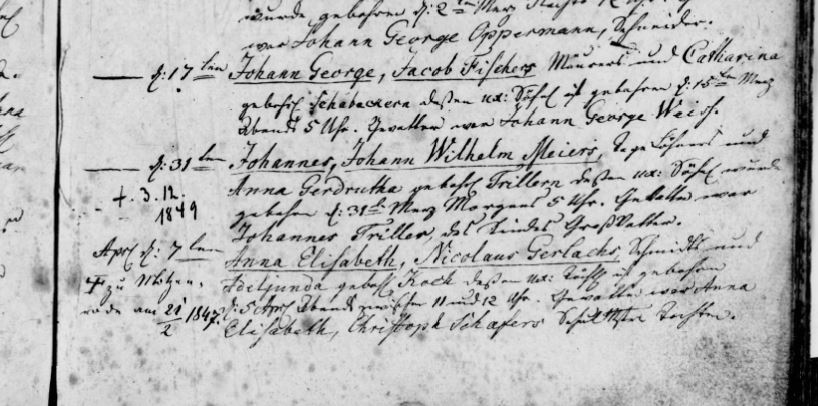 wurde gebohren d: 2ten Merz
war Johann George Oppermann, Schneider.
— d: 17ten Johann George, Jacob Fischers Maurers und Catharina
gebohr. Schabackern deßen ux: Söhnl. ist gebohren d: 15ten Merz
Abends 5 Uhr. Gevatter war Johann George Weiß.
— d: 31ten Johannes, Johann Wilhelm Meiers, Tagelöhners und
+. 3.12. 1849
Anna Gerdrutha gebohr. Trillern deßen ux: Söhnl. wurde
gebohren d: 31ten Merz Morgens 5 Uhr. Gevatter war
Johannes Triller, des Kindes GroßVatter.
Apr. d: 7ten Anna Elisabeth, Nicolaus Gerlachs, Schmidts und
+ zu Witzenrode am 21/2 1847.
gebohr. Kock deßen ux: Töchtl. ist gebohren
d: 5 Apr. Abends zwischen 11 und 12 Uhr. Gevatter war Anna
Elisabeth, Christoph Schäfers Tochter.